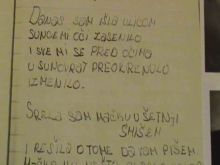 DANAS SAM IŠLA ULICOM
SUNCE MI OČI ZASENILO
I SVE MI SE PRED OČIMA
U SUNOVRAT PREOKRENULO
IZMENILO.
SRELA SAM MAČKU U ŠETNJI
I REŠILA O TOME DA VAM PIŠEM.